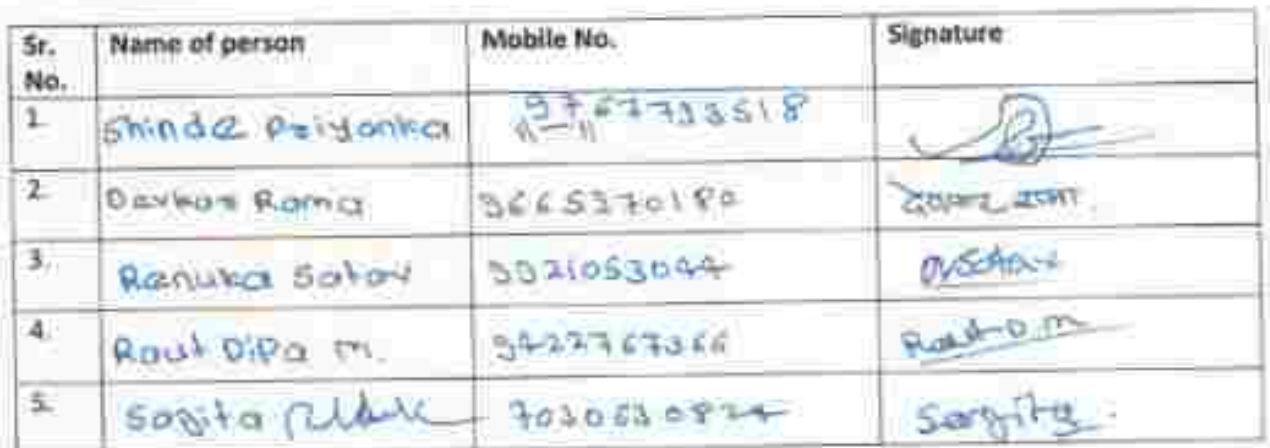 Sr. No. Name of person Mobile No. Signature
1. Shinde Priyanka 9767733518
2. Devkar Rama 9665370180 देवकर रामा.
3. Renuka Satav 9921053044
4. Raut Dipa m. 9422767366 Raut D.m
5. Sagita 7030630824 Sagita